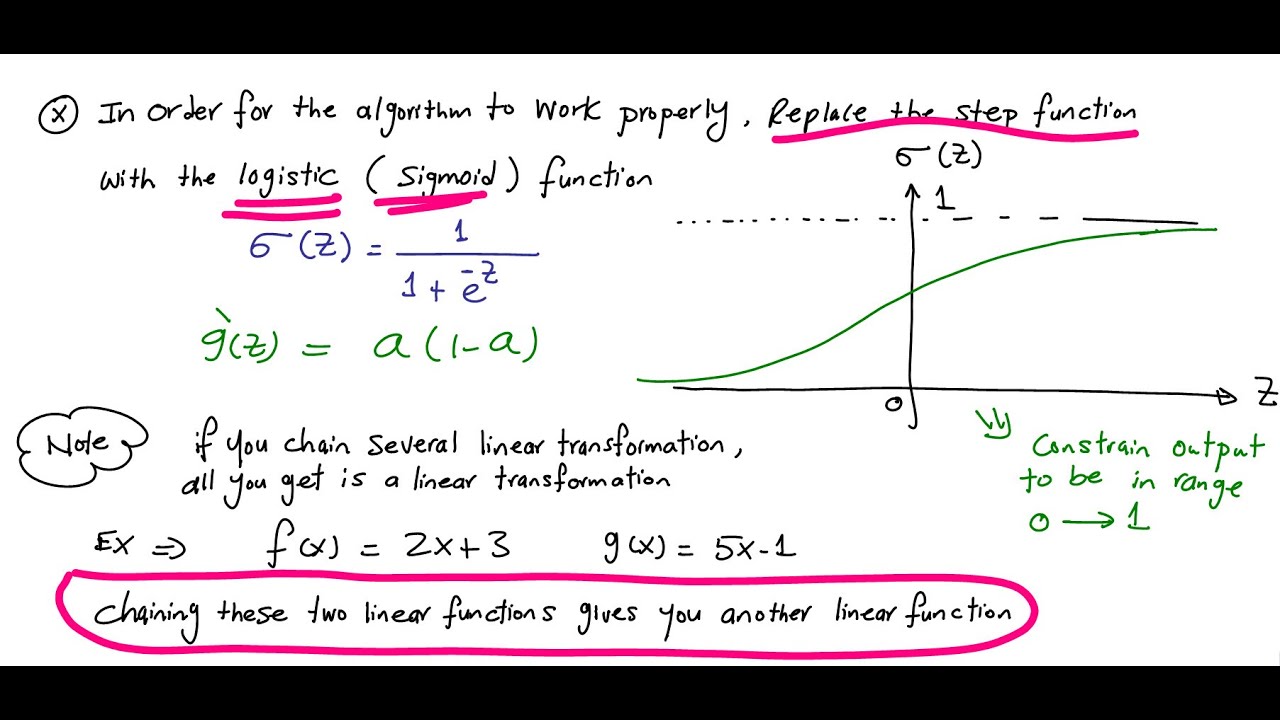 (x) In order for the algorithm to work properly, Replace the step function
with the logistic (sigmoid) function
σ(z) = 1 / (1 + e^-z)
g̀(z) = a(1-a)
σ(z)
1
0
z
Constrain output
to be in range
0 → 1
Note
if you chain several linear transformation,
all you get is a linear transformation
Ex ⇒ f(x) = 2x+3 g(x) = 5x-1
Chaining these two linear functions gives you another linear function